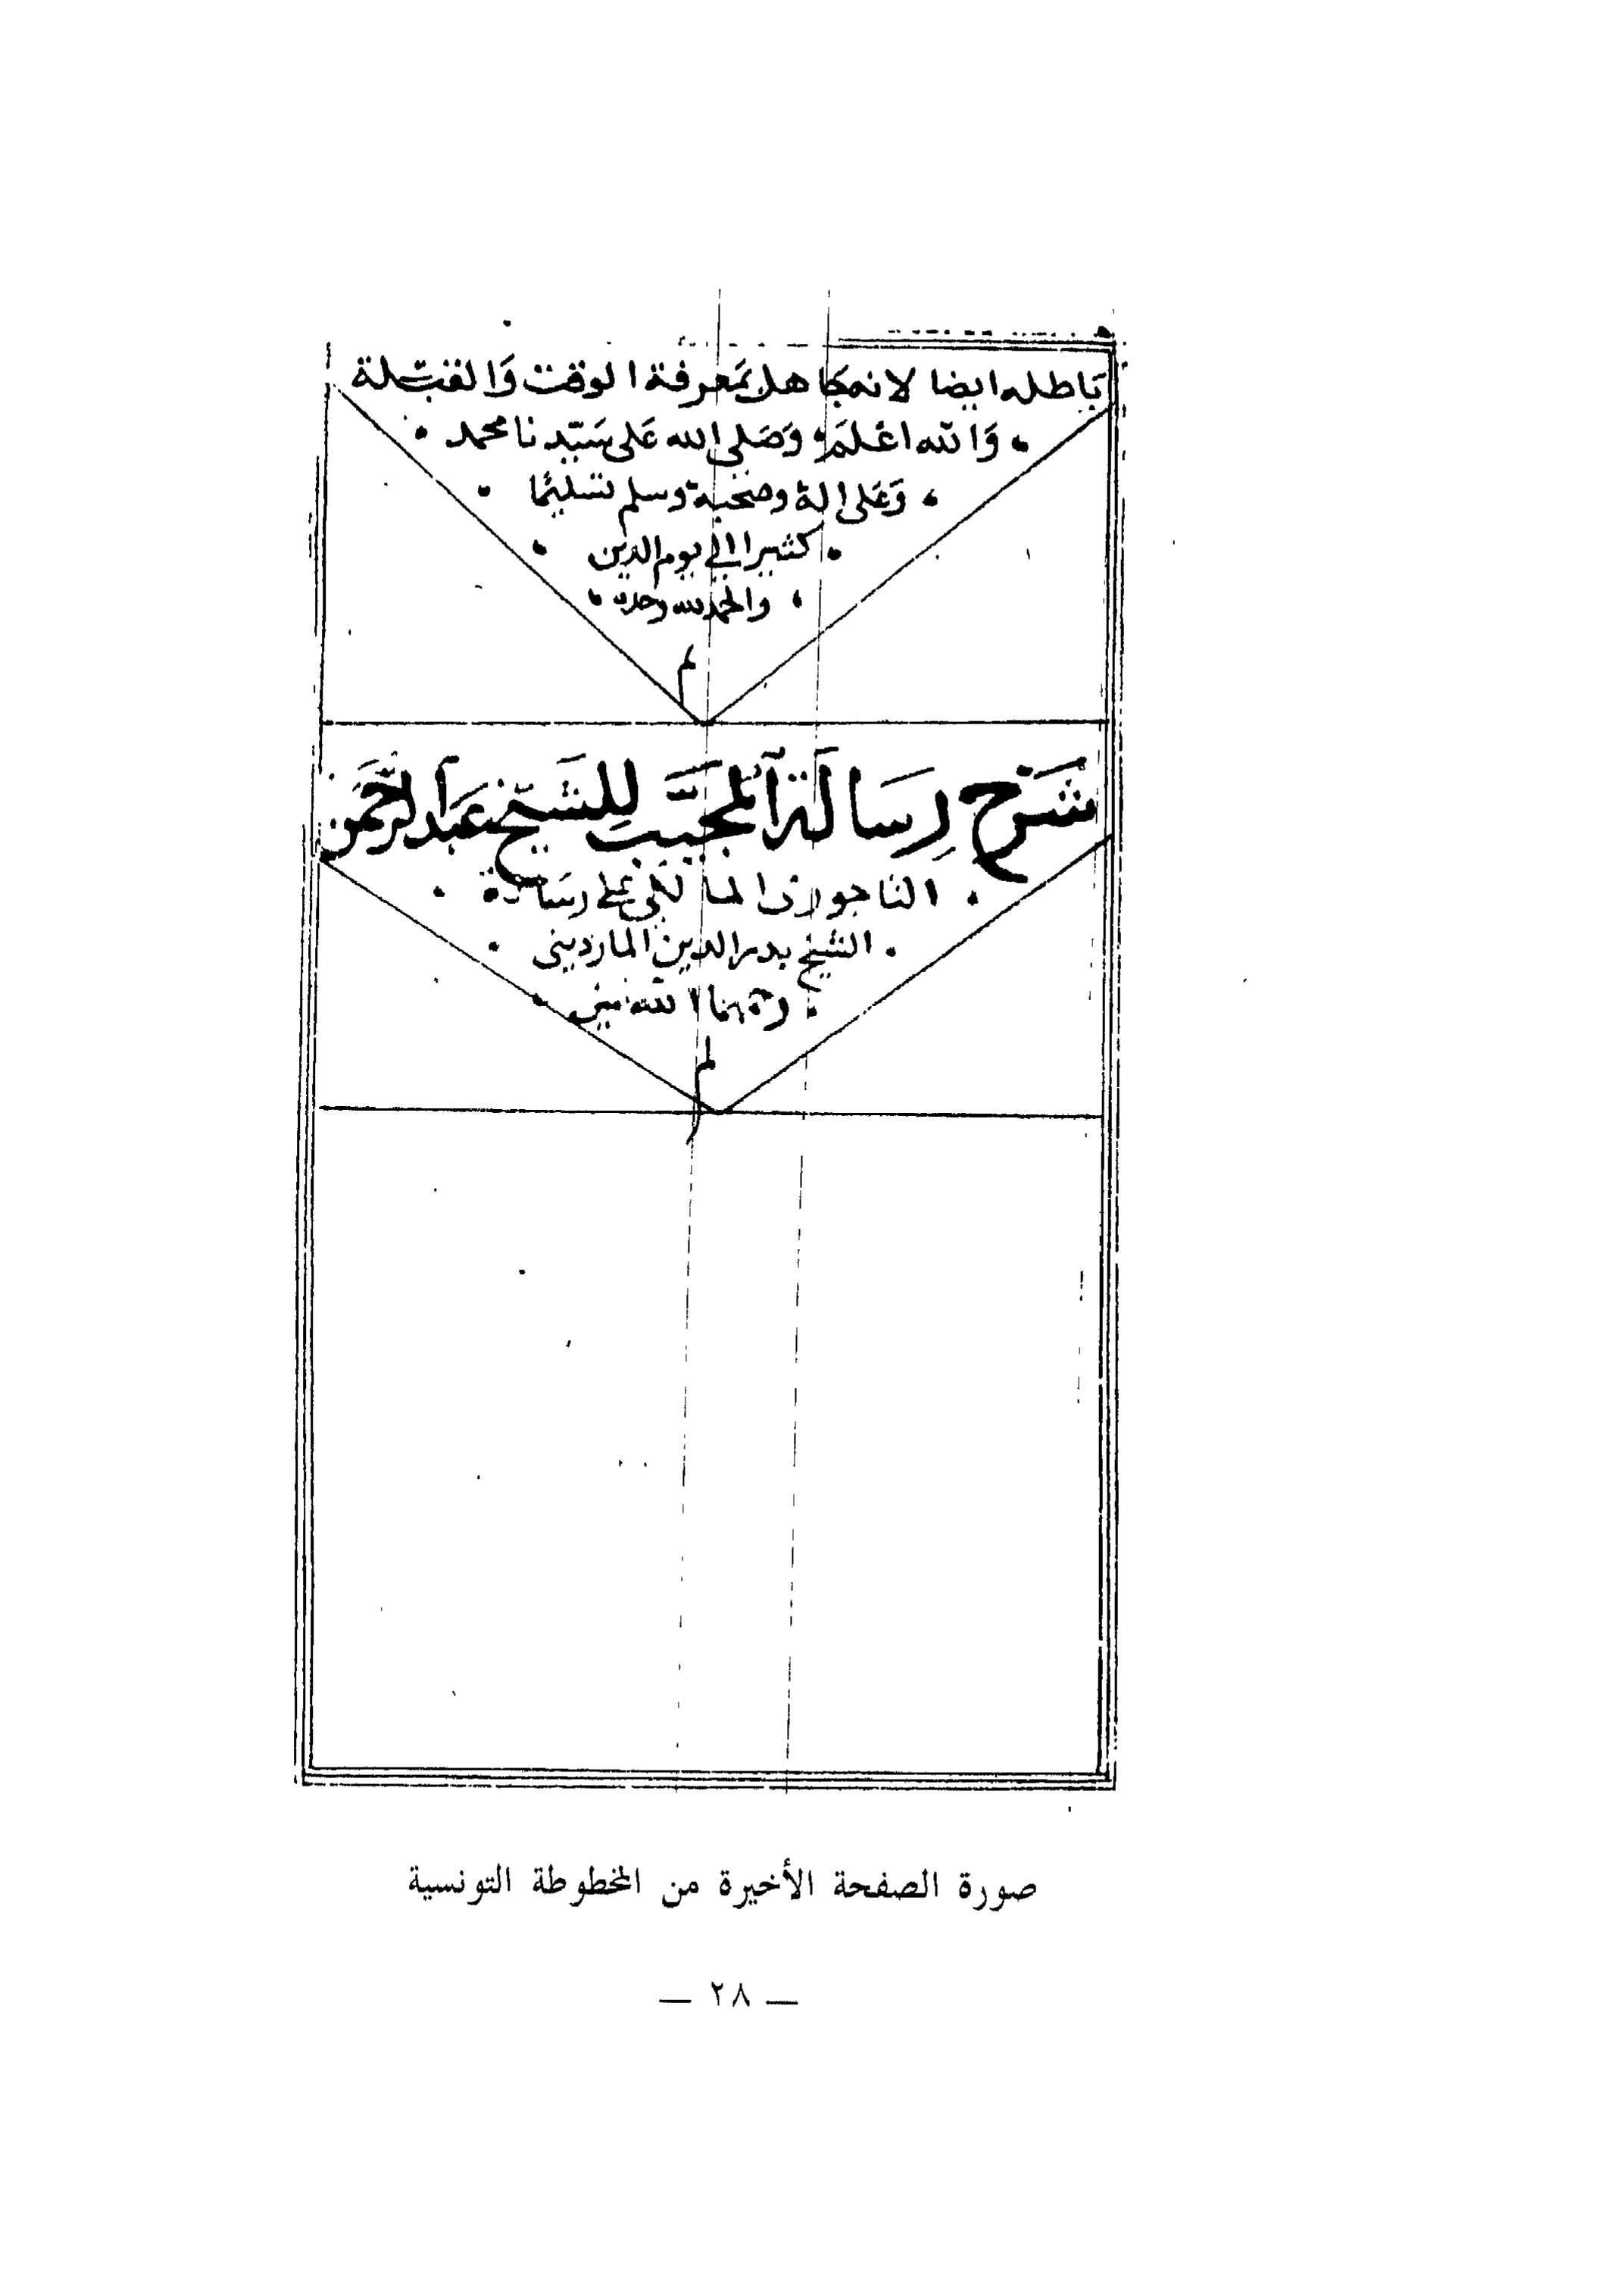 باطله ايضا لانه جاهل بمعرفة الوقت والقبلة
والله اعلم وصلى الله على سيدنا محمد
وعلى اله وصحبه وسلم تسليما
كثيرا الى يوم الدين
والحمد لله وحده
م
شَرح رِسَالة المجيَّب لِلشَّيْخ عَبد الرَّحمَن
التاجورى المالكى على رسالة
الشيخ بدر الدين الماردينى
رحمهما الله
م
صورة الصفحة الأخيرة من المخطوطة التونسية
— ٢٨ —